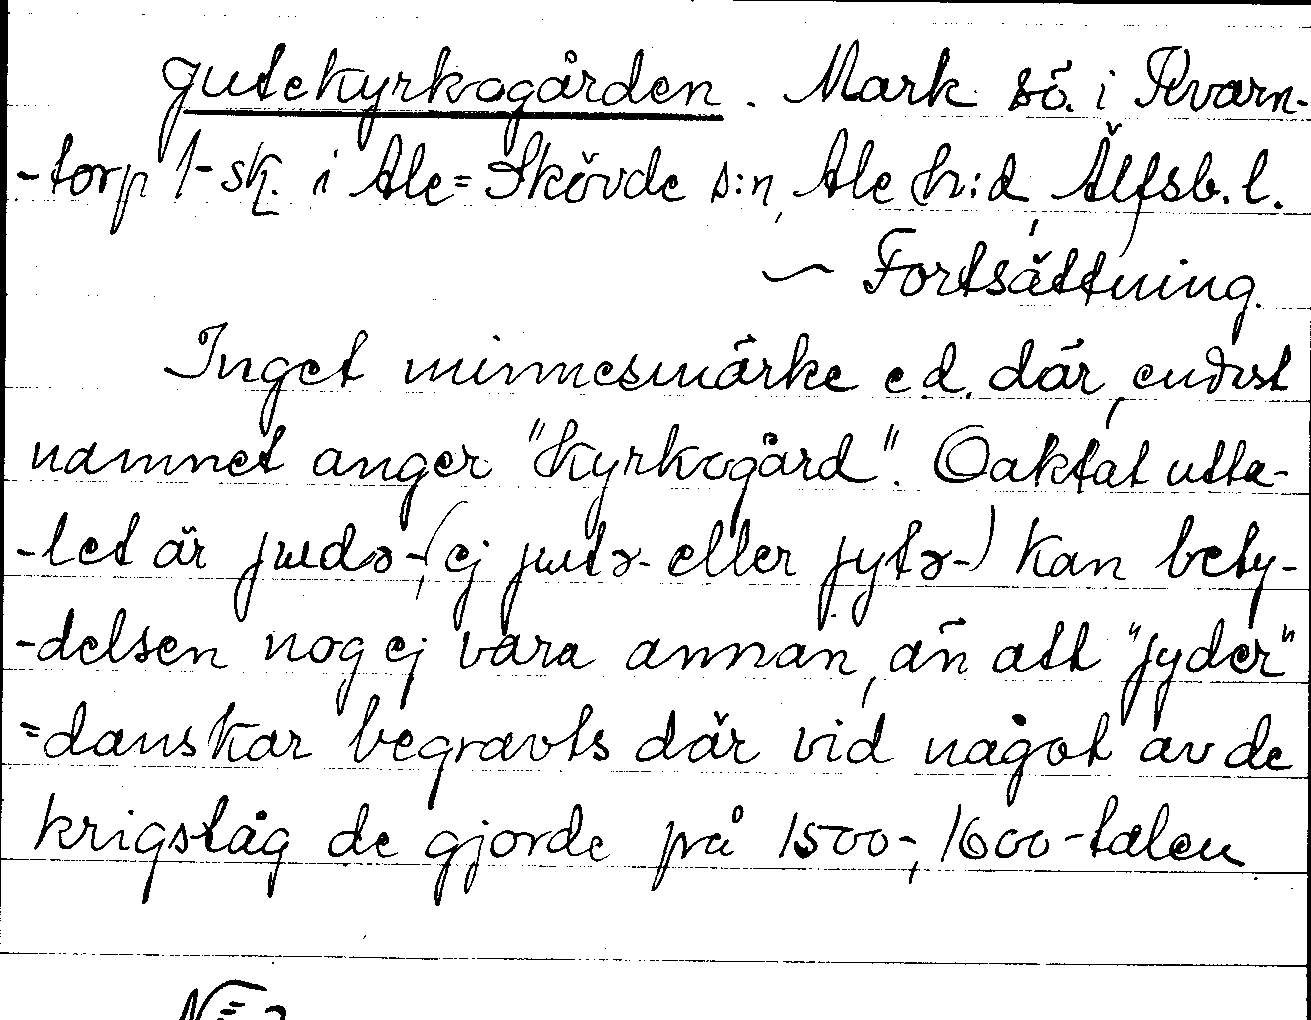 Jutekyrkogården. Mark sö. i Kvarn-
-torp 1-sk. i Ale=Skövde s:n, Ale h:d, Älfsb. l.
~ Fortsättning.
Inget minnesmärke e.d. där, endast
namnet anger "Kyrkogård". Oaktat utta-
-let är judə-, (ej jutə- eller jytə-) kan bety-
-delsen nog ej vara annan, än att "jyder"
=danskar begravts där vid något av de
krigståg de gjorde på 1500-, 1600-talen.